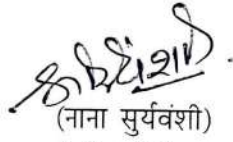 (नाना सुर्यवंशी)